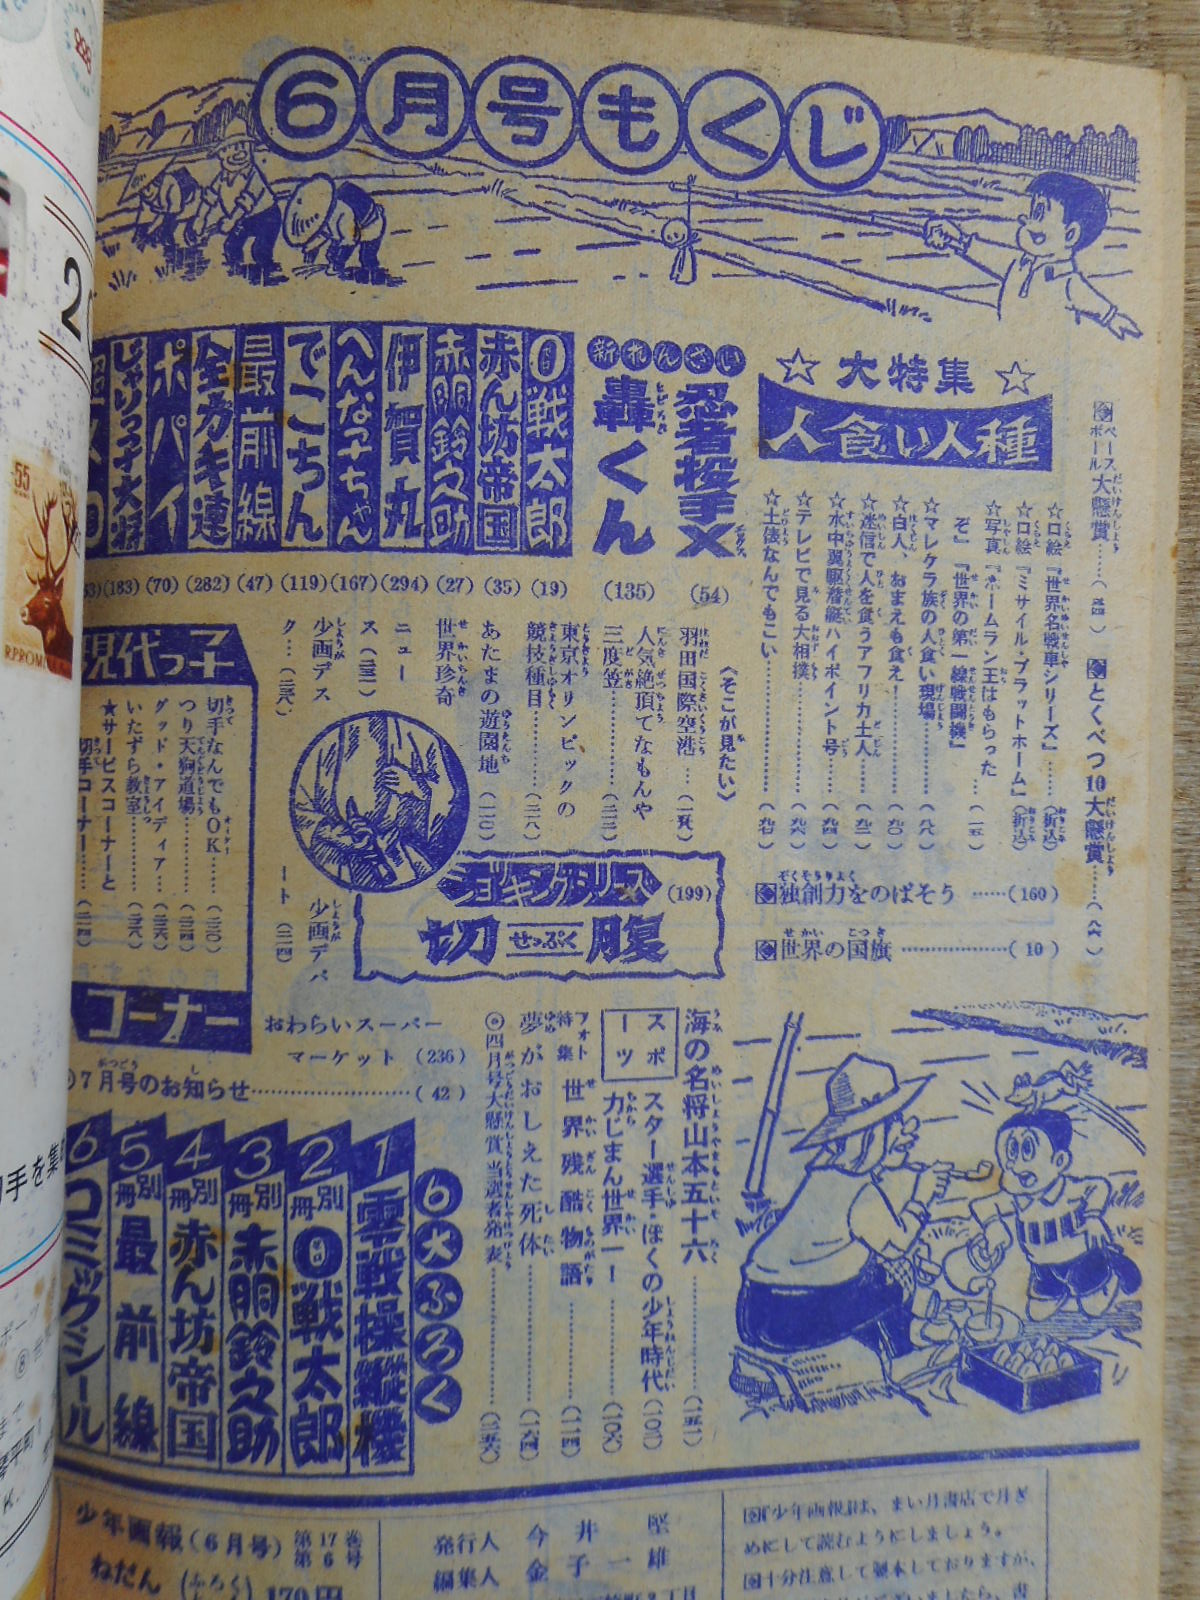 6月号もくじ
ベースボール大懸賞
とくべつ10大懸賞
☆大特集☆
人食い人種
☆口絵『世界名戦車シリーズ』……(折込)
☆口絵『ミサイル・プラットホーム』(折込)
☆写真『ホームラン王はもらったぞ』『世界の第一線戦闘機』……(一五)
☆マレクラ族の人食い現場……(八八)
☆白人、おまえも食え!……(九〇)
☆迷信で人を食うアフリカ土人…(九二)
☆水中翼駆潜艇ハイポイント号…(九四)
☆テレビで見る大相撲……(九六)
☆土俵なんでもこい……(九七)
独創力をのばそう……(160)
世界の国旗……(10)
新れんさい
忍者投手X
(54)
轟くん
(135)
0戦太郎
(19)
赤ん坊帝国
(35)
赤胴鈴之助
(27)
伊賀丸
(294)
へんな子ちゃん
(167)
でこちん
(119)
最前線
(47)
全ガキ連
(282)
ポパイ
(70)
じゃりっ子大将
(183)
<そこが見たい>
羽田国際空港…
人気絶頂てなもんや三度笠…
東京オリンピックの競技種目……(二二八)
あたまの遊園地
世界珍奇ニュース
少画デスク…
少画デパート
(二一四)
ショッキングシリーズ
(199)
切腹
せっぷく
現代っ子
切手なんでもOK……
つり天狗道場……
グッド・アイディア…
いたずら教室……
★サービスコーナーと切手コーナー……
コーナー
おわらいスーパーマーケット (236)
7月号のお知らせ……(42)
海の名将山本五十六……(一五二)
スポーツ
スター選手・ぼくの少年時代(一〇二)
力じまん世界一!……(一〇六)
フォト特集 世界残酷物語……(二一四)
夢がおしえた死体……(一六四)
◎四月号大懸賞当選者発表……(二五六)
6大ふろく
1 零戦操縦機
2 別冊 0戦太郎
3 別冊 赤胴鈴之助
4 別冊 赤ん坊帝国
5 別冊 最前線
6 コミックシール
少年画報(6月号) 第17巻 第6号
ねだん (ふろく
170円
発行人 今井堅
編集人 金子一雄
『少年画報』は、まい月書店で月ぎめにして読むようにしましょう。
十分注意して製本しておりますが、
55
R.PROMINA